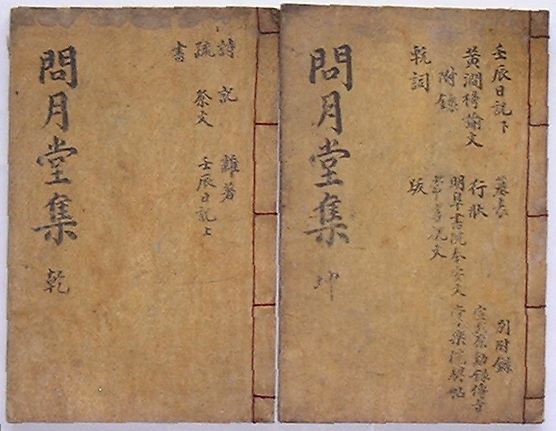 詩 記 雜著
疏 祭文 壬辰日記上
書
問月堂集 乾
壬辰日記下 墓表 別附錄
黃澗檄諭文 行狀
附錄 明皐書院奉安文
輓詞 跋
問月堂集 坤